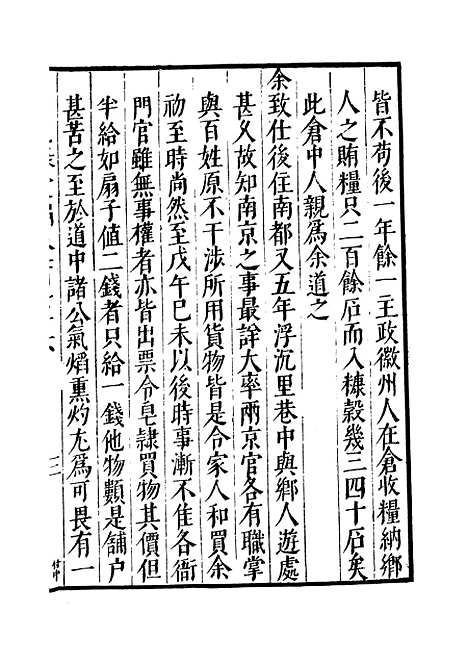 皆不苟後一年餘一主政徽州人在倉收糧納鄉
人之賄糧只二百餘石而入糠穀幾三四十石矣
此倉中人親爲余道之
余致仕後住南都又五年浮沉里巷中與鄉人遊處
甚久故知南京之事最詳大率兩京官各有職掌
與百姓原不干涉所用貨物皆是令家人和買余
初至時尚然至戊午巳未以後時事漸不佳各衙
門官雖無事權者亦皆出票令皂隸買物其價但
半給如扇子值二錢者只給一錢他物類是舖户
甚苦之至於道中諸公氣熖熏灼尤爲可畏有一
三